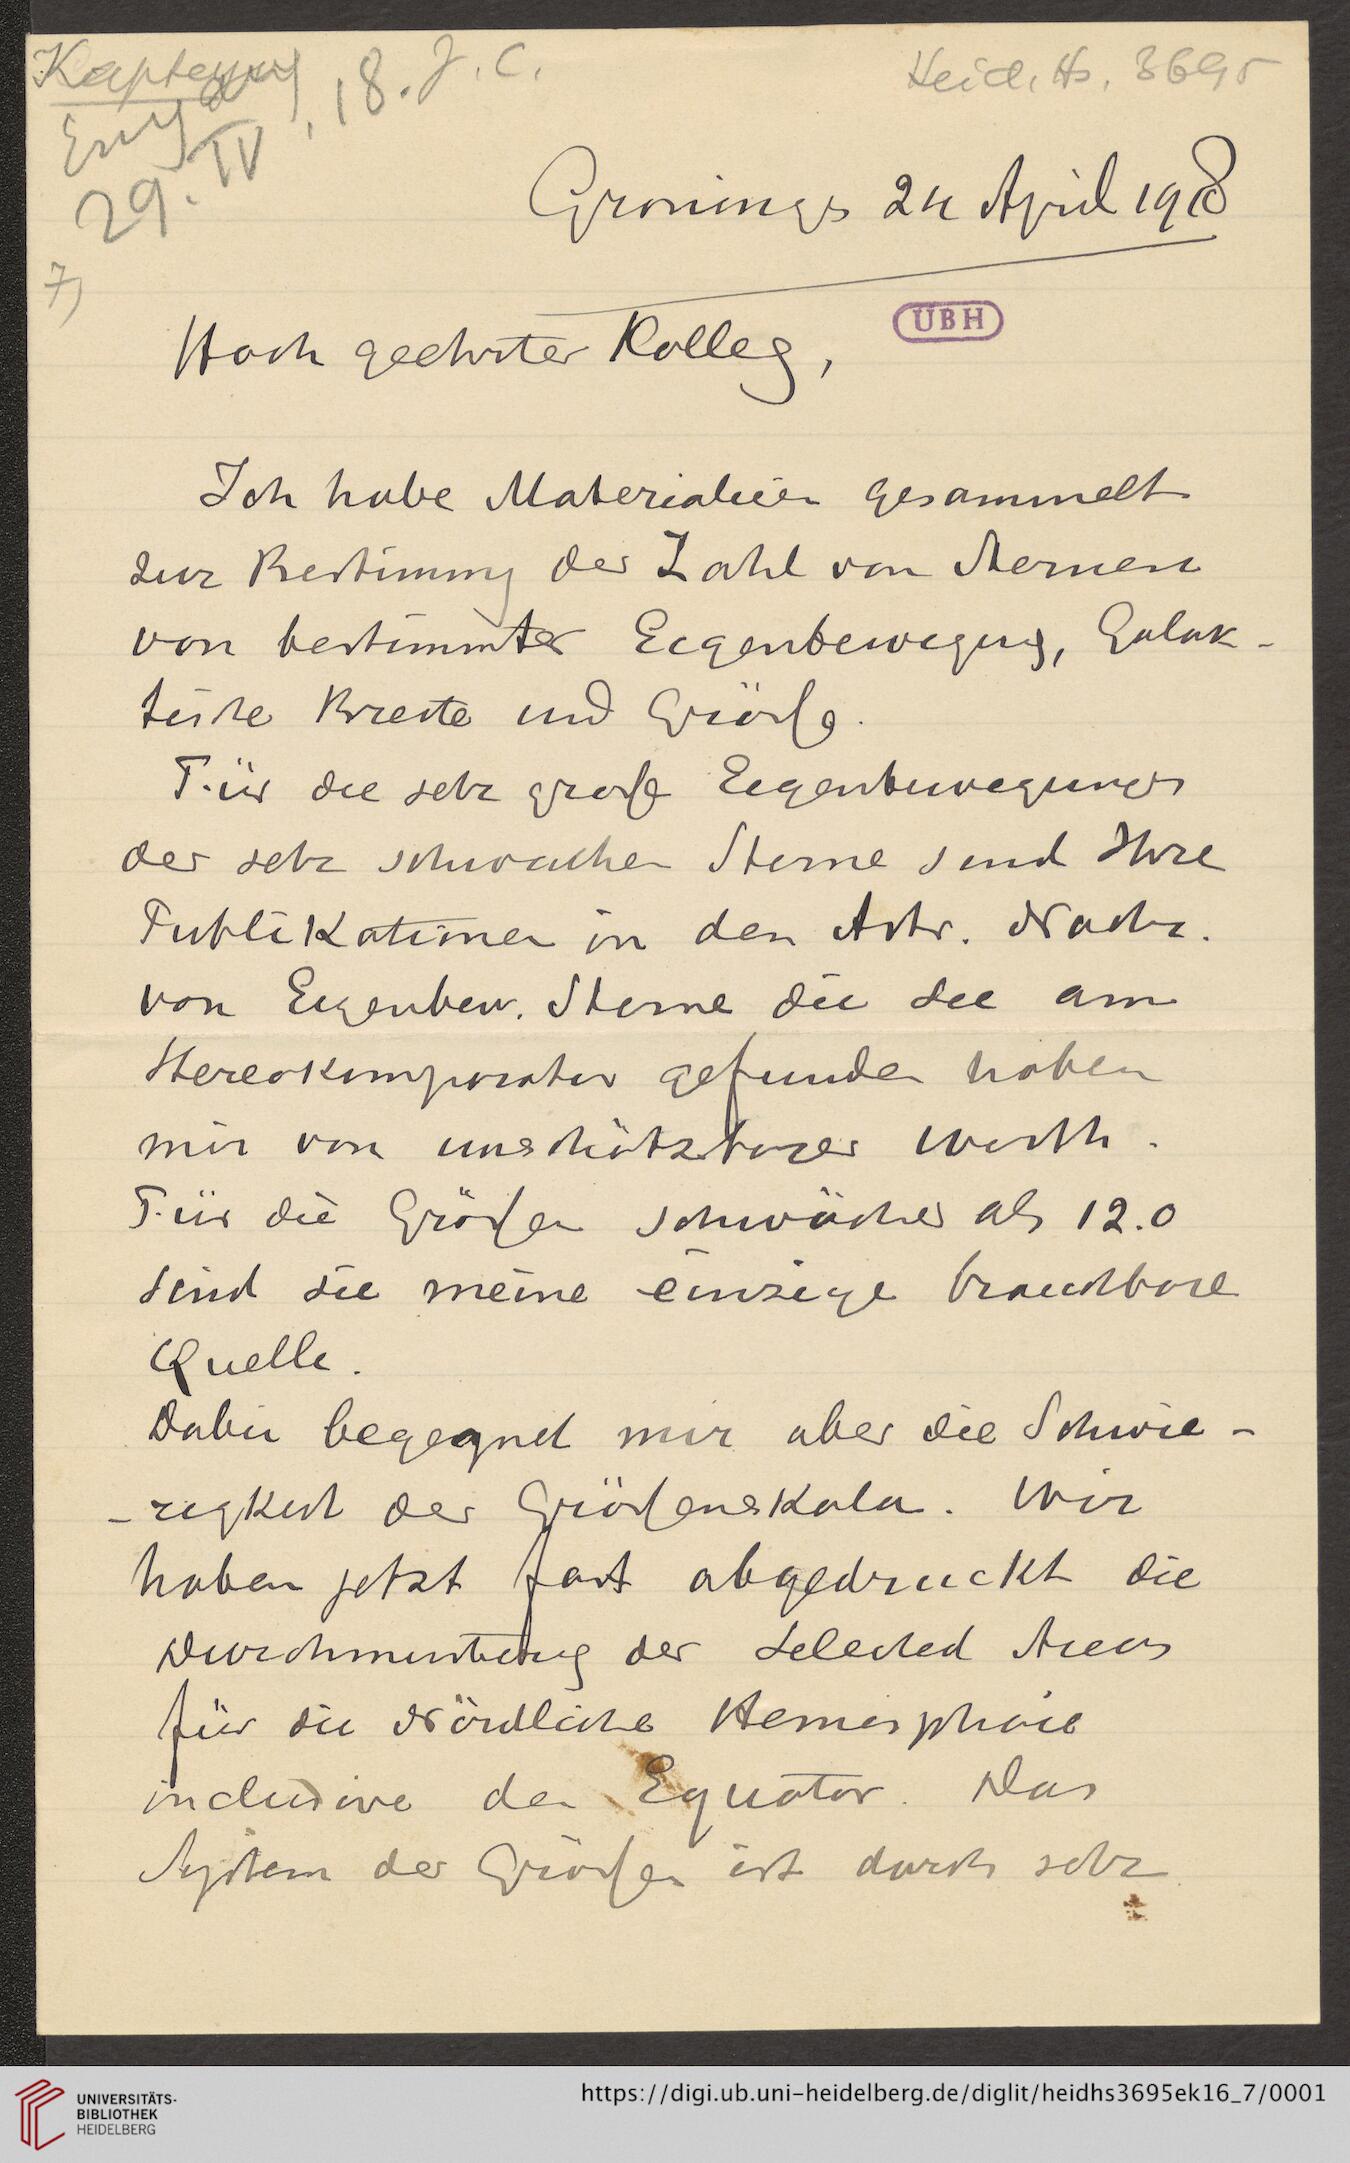 Kapteyn, J. C.
Heid. Hs. 3695
Empf
29. IV, 18.
7)
Groningen 24 April 1918
UBH
Hoch geehrter Kolleg,
Ich habe Materialien gesammelt
zur Bestimmung der Zahl von Sternen
von bestimmter Eigenbewegung, Galak-
tische Breite und Größe.
Für die sehr große Eigenbewegungen
der sehr schwachen Sterne sind Ihre
Publikationen in den Astr. Nachr.
von Eigenbew. Sterne die Sie am
Stereokomparator gefunden haben
mir von unschätzbarer Werth.
Für die Größen schwächer als 12.0
sind sie meine einzige brauchbare
Quelle.
Dabei begegnet mir aber die Schwie-
-rigkeit der Größenskala. Wir
haben jetzt fast abgedruckt die
Durchmusterung der Selected Areas
für die Nördliche Hemisphäre
inclusive den Equator. Das
System der Größen ist durch sehr
UNIVERSITÄTS-
BIBLIOTHEK
HEIDELBERG
https://digi.ub.uni-heidelberg.de/diglit/heidhs3695ek16_7/0001